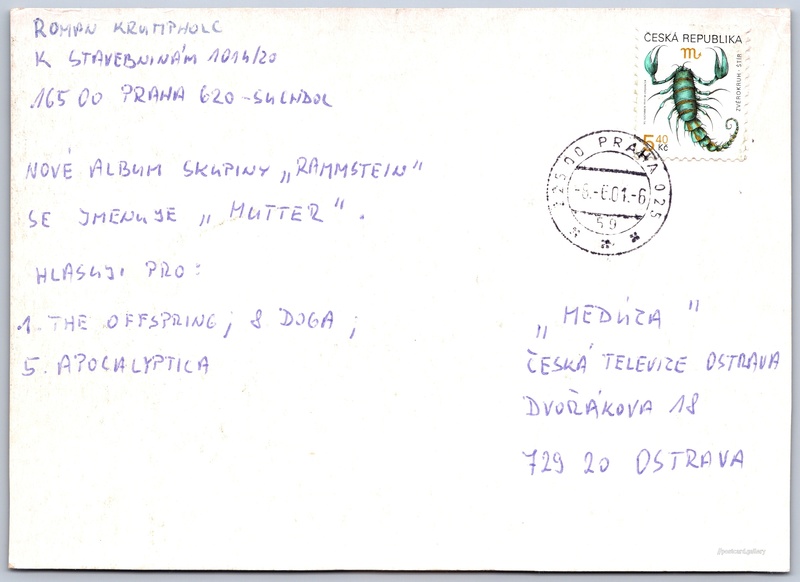 ROMAN KRUMPHOLC
K STAVEBNINÁM 1014/20
165 00 PRAHA 620-SUCHDOL
NOVÉ ALBUM SKUPINY „RAMMSTEIN"
SE JMENUJE „MUTTER".
HLASUJI PRO:
1. THE OFFSPRING; 8 DOGA;
5. APOCALYPTICA
ČESKÁ REPUBLIKA
ZVĚROKRUH - ŠTÍR
5 40 Kč
225 00 PRAHA 025
-6.-6.01.-6
59
„MEDÚZA"
ČESKÁ TELEVIZE OSTRAVA
DVOŘÁKOVA 18
729 20 OSTRAVA